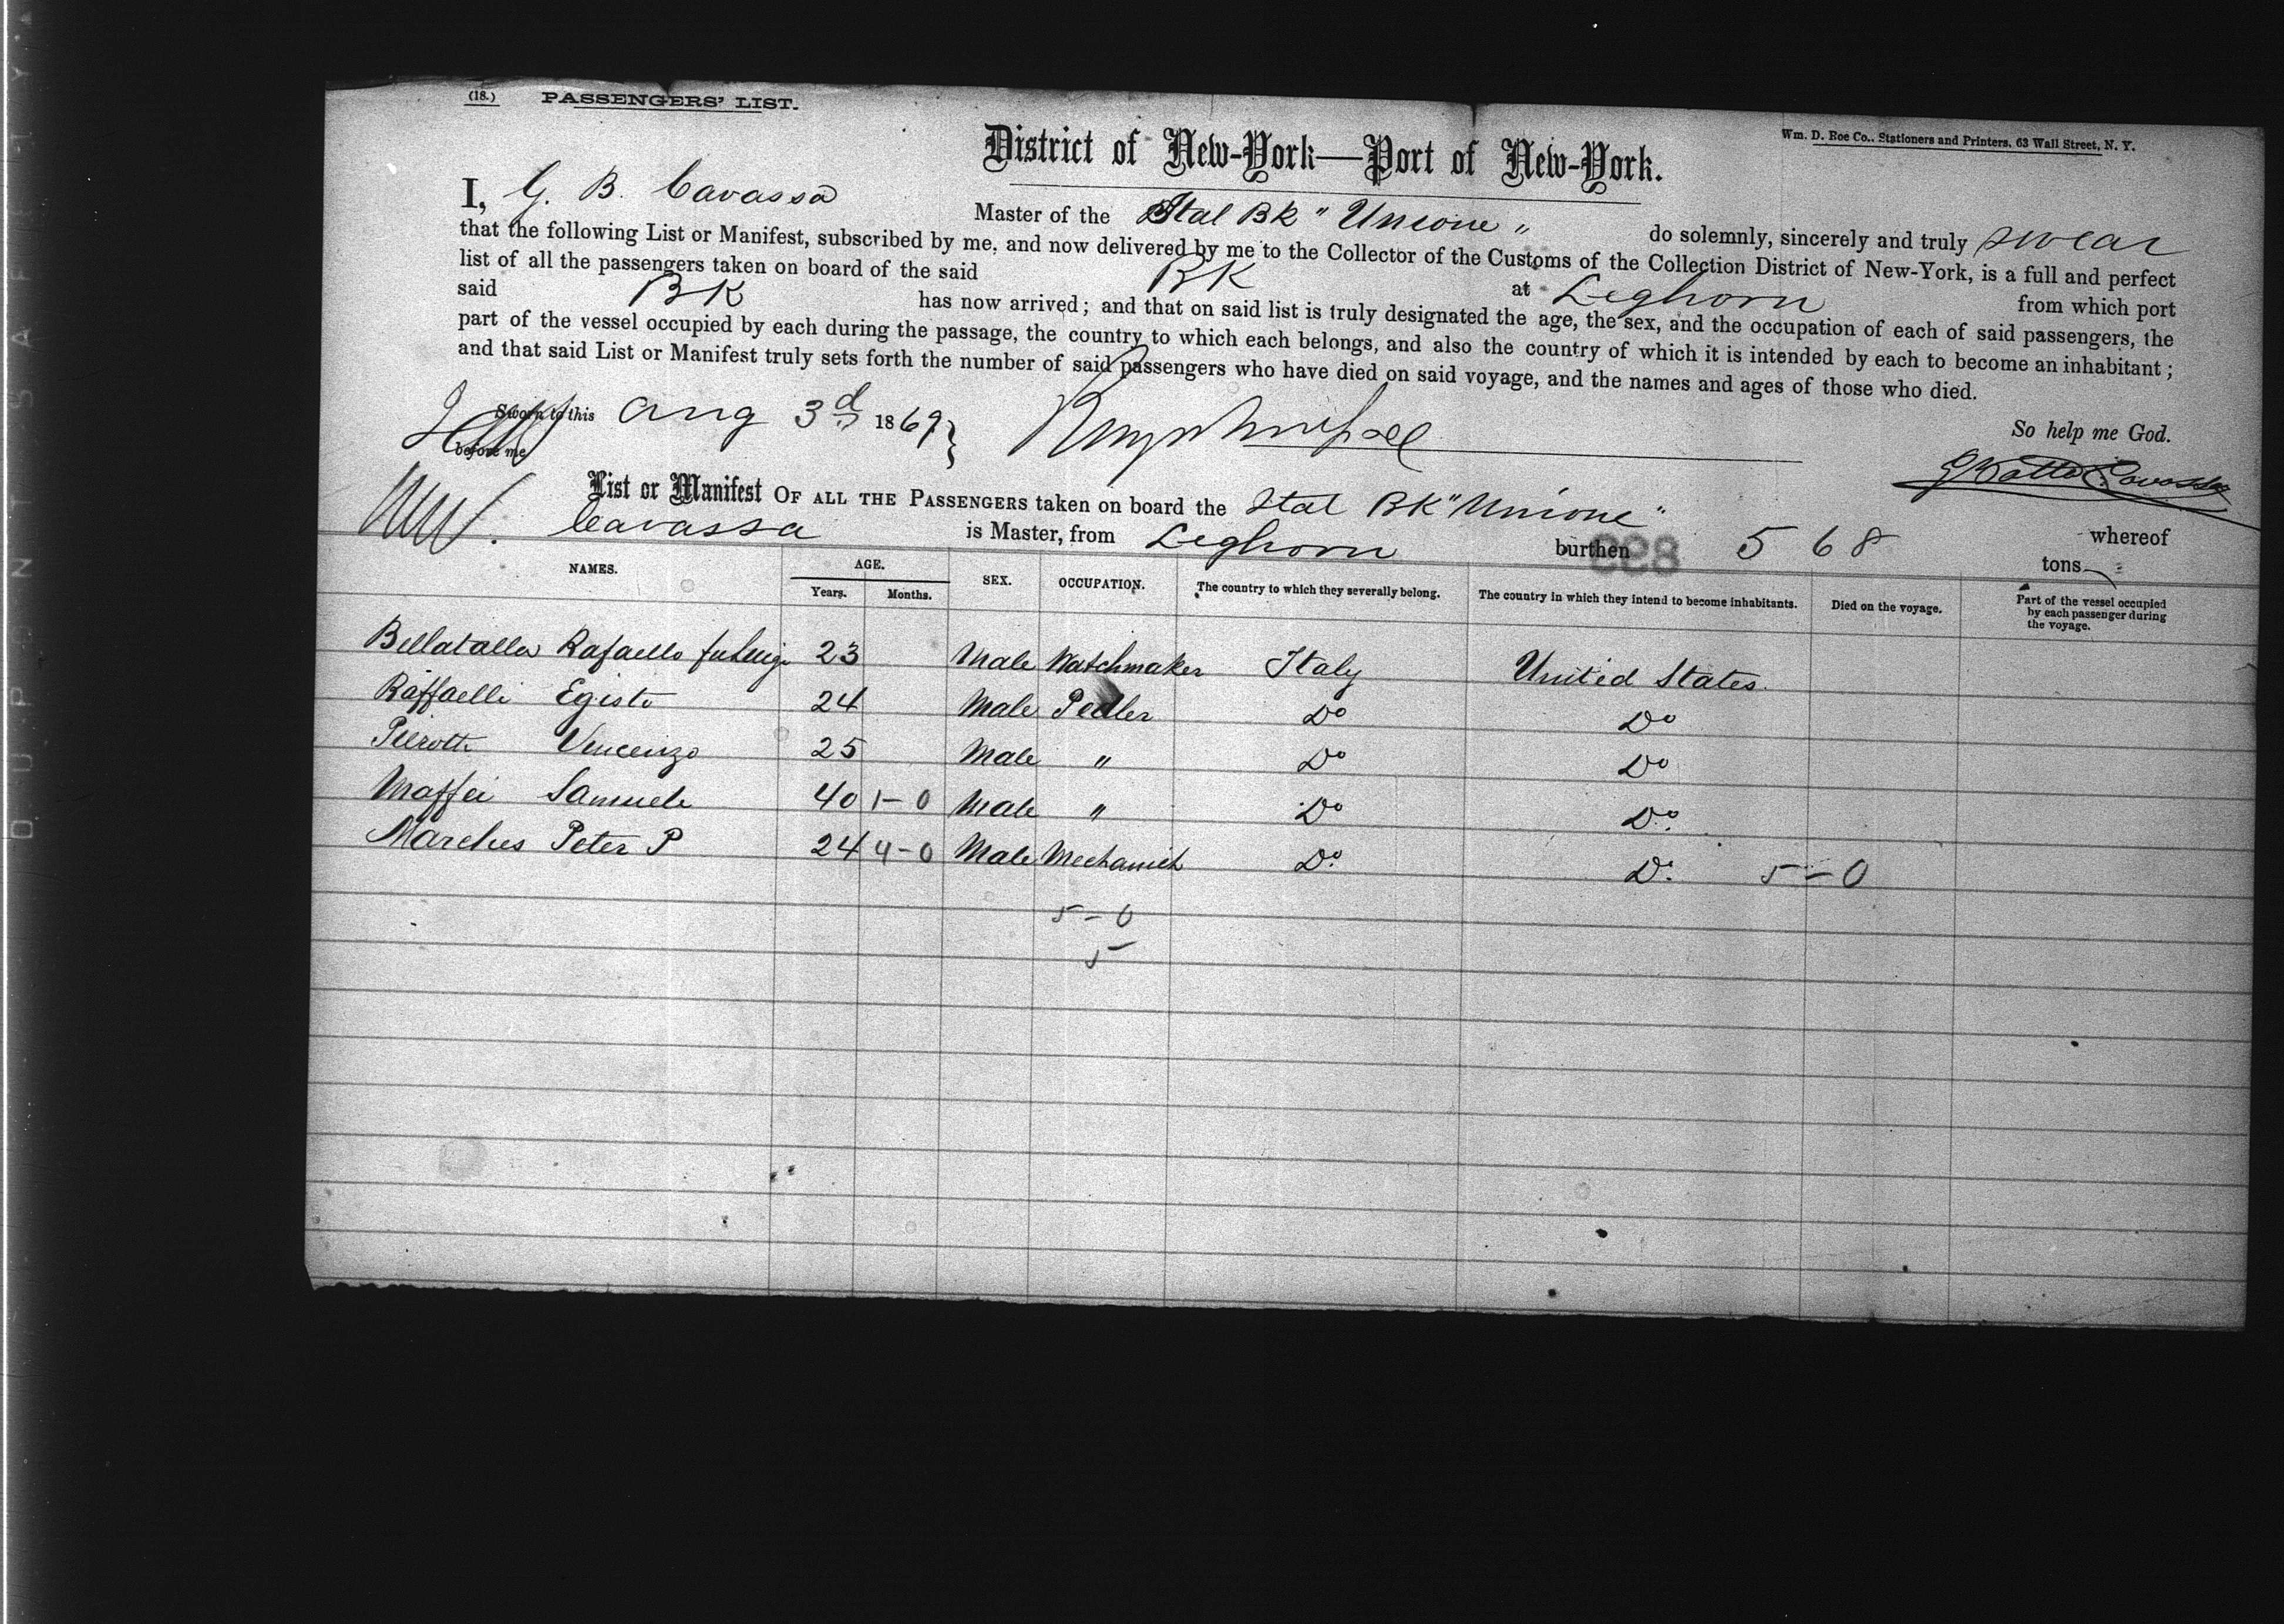 (18.) PASSENGERS' LIST.
Wm. D. Roe Co., Stationers and Printers, 63 Wall Street, N. Y.
District of New-York—Port of New-York.
I, G. B. Cavassa Master of the Ital BK "Unione" do solemnly, sincerely and truly swear
that the following List or Manifest, subscribed by me, and now delivered by me to the Collector of the Customs of the Collection District of New-York, is a full and perfect
list of all the passengers taken on board of the said BK at Leghorn from which port
said BK has now arrived; and that on said list is truly designated the age, the sex, and the occupation of each of said passengers, the
part of the vessel occupied by each during the passage, the country to which each belongs, and also the country of which it is intended by each to become an inhabitant;
and that said List or Manifest truly sets forth the number of said passengers who have died on said voyage, and the names and ages of those who died.
So help me God.
Sworn to this Aug 3d 1869
before me
List or Manifest OF ALL THE PASSENGERS taken on board the Ital BK "Unione" whereof
Cavassa is Master, from Leghorn burthen 568 tons
899
NAMES. AGE. SEX. OCCUPATION. The country to which they severally belong. The country in which they intend to become inhabitants. Died on the voyage. Part of the vessel occupied by each passenger during the voyage.
Years. Months.
Rafaello 23 Male Watchmaker Italy United States.
Raffaelli Egisto 24 Male Pedler Do Do
Pierotti Vincenzo 25 Male " Do Do
Maffei Samuele 40 1-0 Male " Do Do
Peter P 24 4-0 Male Mechanick Do Do 5-0
5-0
5
DUPONT SAFETY